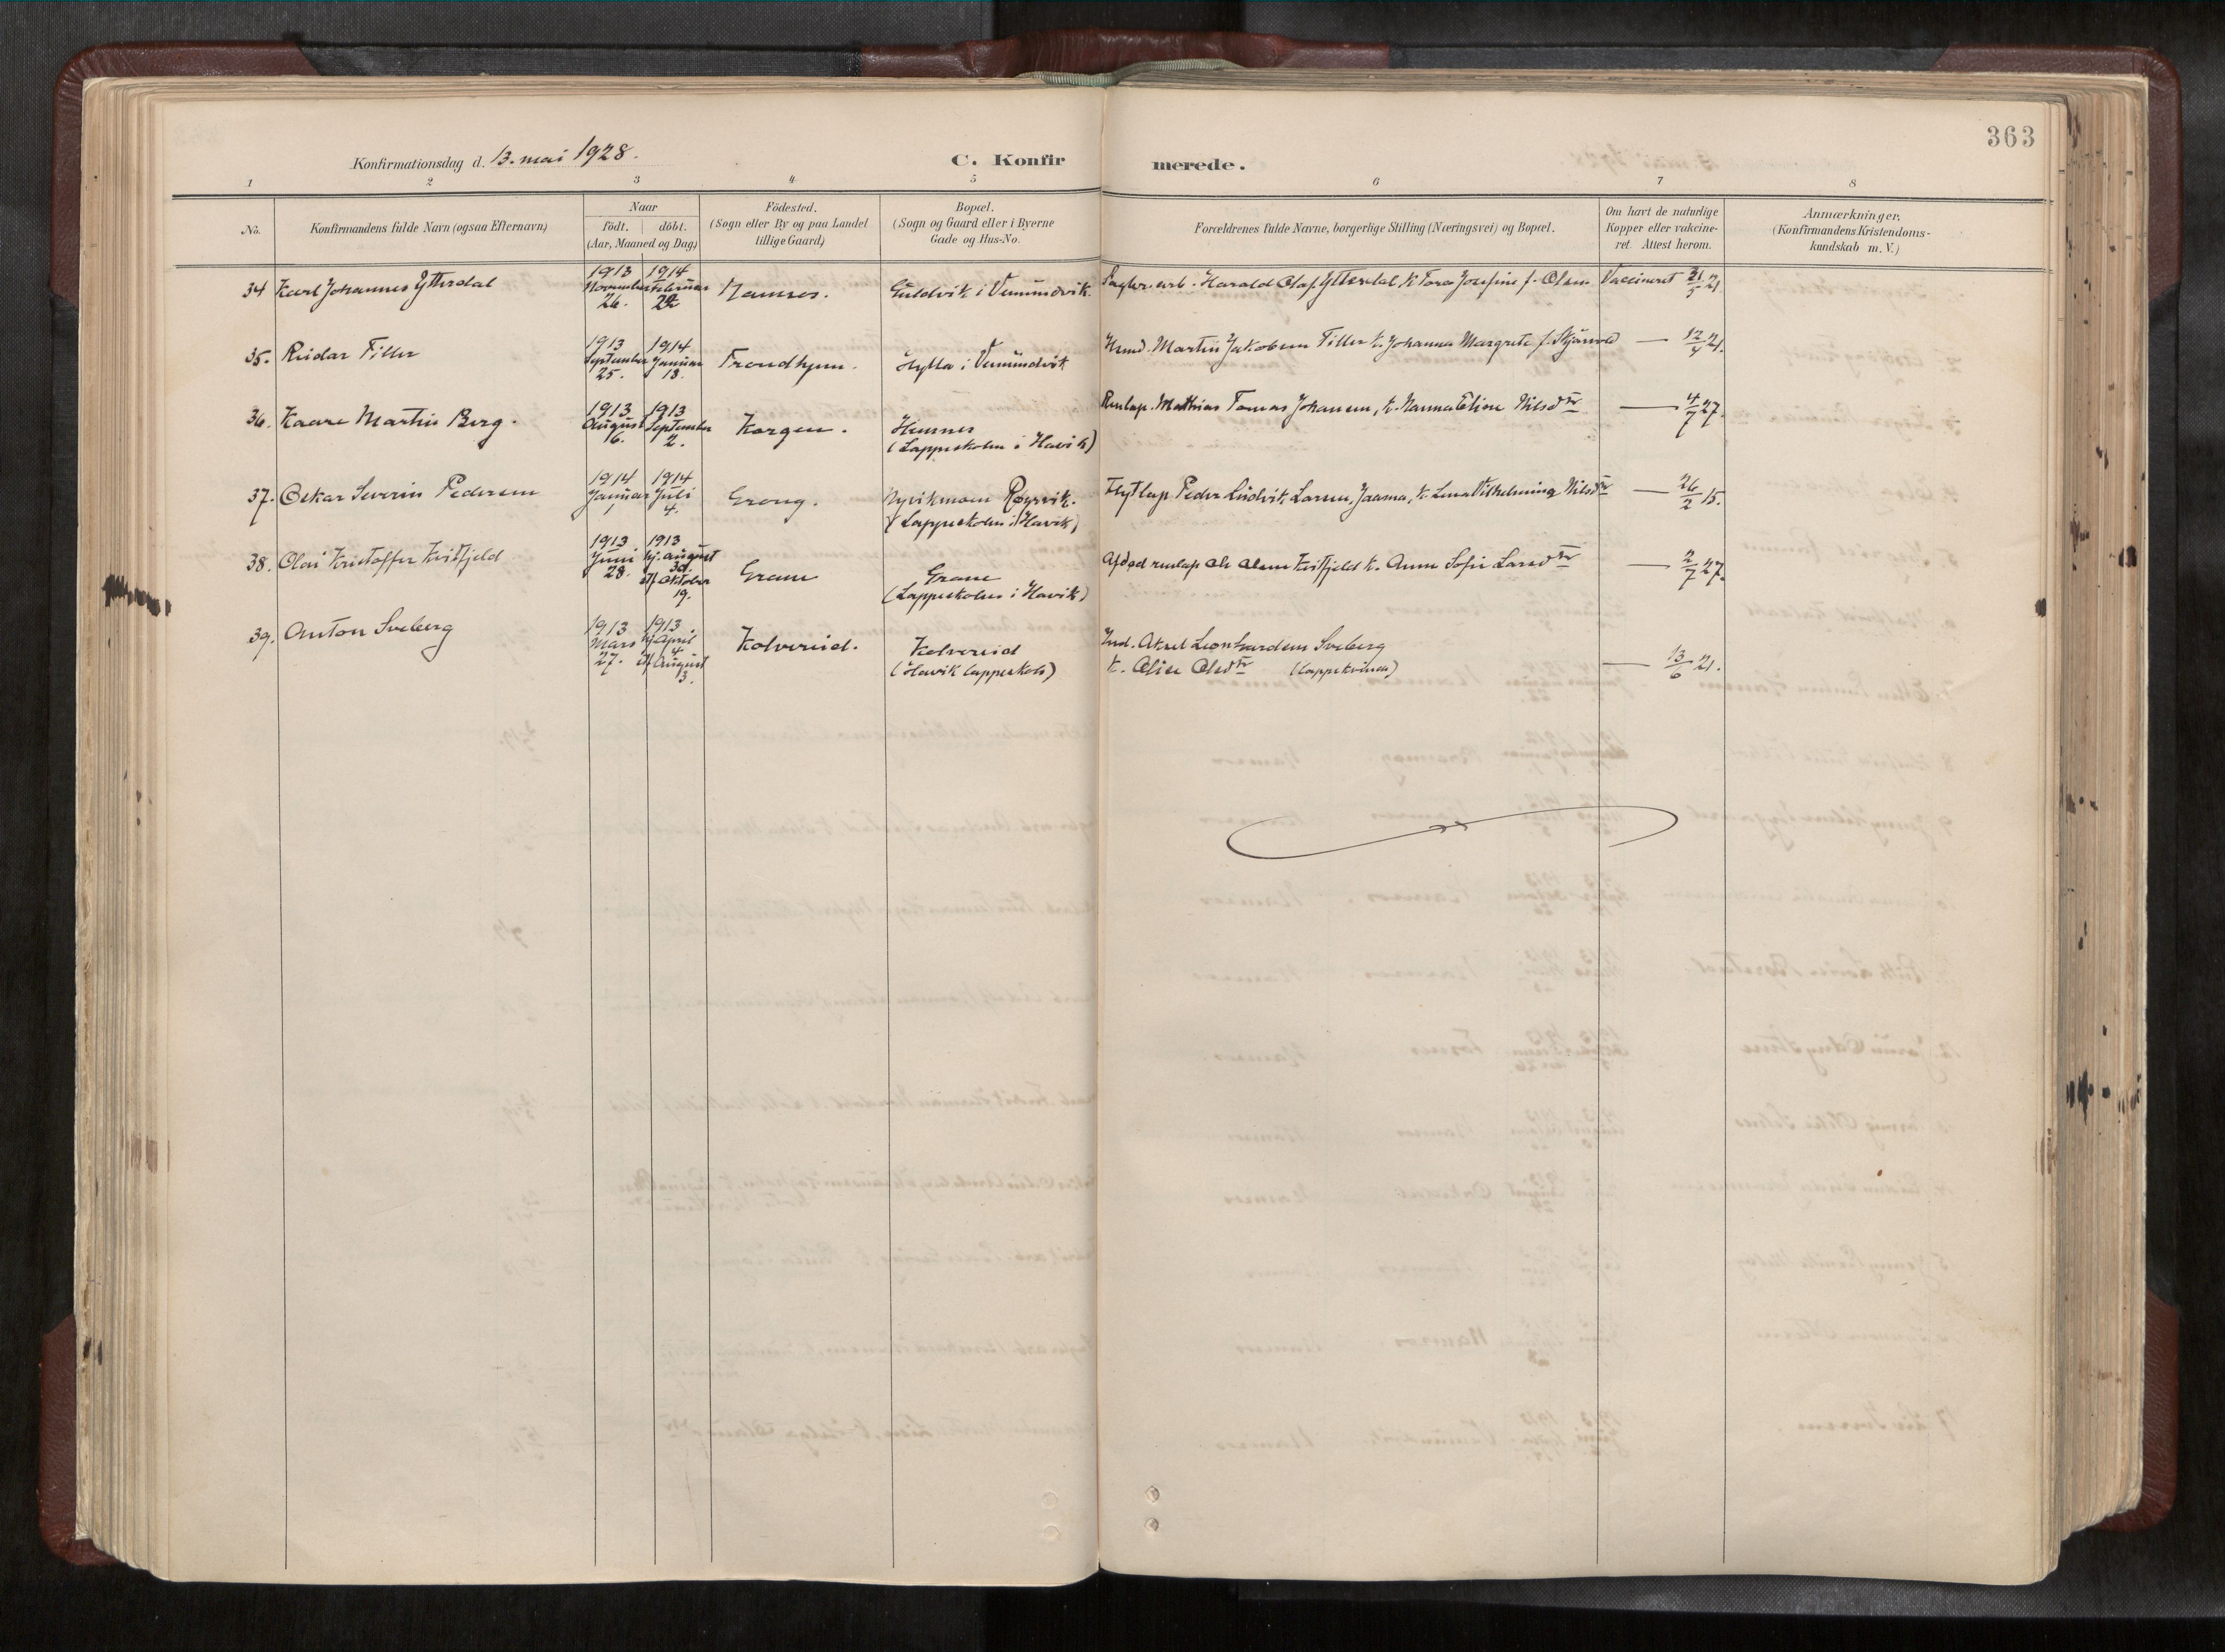 363
Konfirmationsdag d. 13. mai 1928.
C. Konfirmerede.
1 2 3 4 5 6 7 8
No.
Konfirmandens fulde Navn (ogsaa Efternavn)
Naar
födt. döbt.
(Aar, Maaned og Dag)
Födested.
(Sogn eller By og paa Landet
tillige Gaard)
Bopæl.
(Sogn og Gaard eller i Byerne
Gade og Hus-No.
Forældrenes fulde Navne, borgerlige Stilling (Næringsvei) og Bopæl.
Om havt de naturlige
Kopper eller vakcine-
ret. Attest herom.
Anmærkninger.
(Konfirmandens Kristendoms-
kundskab m. V.)
34 Karl Johannes Ytterdal
1913 November 26.
1914 Februar 22
Namsos.
Guldvik i Vemundvik.
Harald Olaf Ytterdal k. Tora Josefine f. Olsen
Vaccineret 31/5 21
35. Reidar Tiller
1913 September 25.
1914 Januar 18.
Trondhjem.
Hylla i Vemundvik
Martin Jakobsen Tiller k. Johanna Margrete f.
— 12/4 21.
36. Kaare Martin Berg.
1913 August 16.
1913 September 2.
Korgen.
Hemnes
(Lappeskolen i Havik)
Renlap. Mathias Tomas Johansen, k. Nanna Eline Nilsdtr
— 4/7 27.
37. Oskar Severin Pedersen
1914 Januar 1
1914 Juli 4.
Grong.
Røyrvik.
(Lappeskolen i Havik)
Flytlap Peder Ludvik Larsen, Jaama, k. Lena Vilhelmina Nilsdtr
— 26/2 15.
38. Olai Kristoffer Kvitfjeld
1913 Juni 28.
1913 hj. august 30. stf oktober 19.
Grane
Grane
(Lappeskolen i Havik)
Afdød renlap Ole Olsen Kvitfjeld k. Anne Sofie Larsdtr
— 2/7 27.
39. Anton Sveberg
1913 Mars 27.
1913. hj. April 4 stf August 3.
Kolvereid.
Kolvereid
(Havik lappeskole)
Ind. Aksel Leonhardsen Sveberg
k. Olsdtr (Lappekvinde)
— 13/6 21.